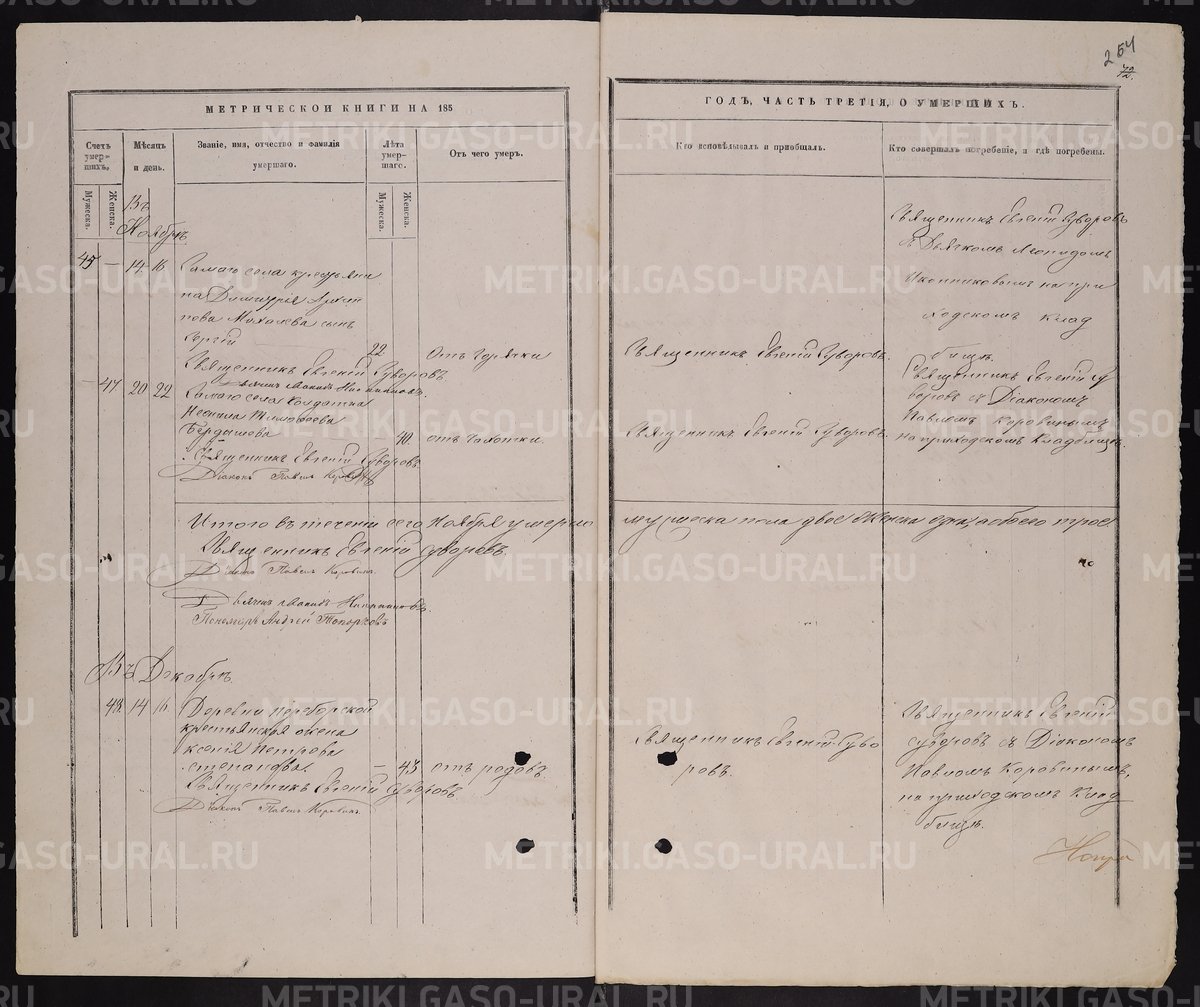 254
72.
МЕТРИЧЕСКОЙ КНИГИ НА 185
ГОДЪ, ЧАСТЬ ТРЕТІЯ, О УМЕРШИХЪ.
Счетъ умер-шихъ,
Мужеска.
Женска.
Мѣсяцъ и день.
Званіе, имя, отчество и фамилія умершаго.
Лѣта умер-шаго.
Мужеска.
Женска.
Отъ чего умеръ.
Кто исповѣдывалъ и пріобщалъ.
Кто совершалъ погребеніе, и гдѣ погребены.
Въ
Ноябрѣ
45 — 14 16
Самаго села крестьяни
на Димитрія
сынъ
Сергій
22
отъ горячки
Священникъ Евгеній Суворовъ.
Священникъ Евгеній Суворовъ
съ Дьячкомъ Леонидомъ
Иконниковымъ на при
ходскомъ клад
бищѣ.
Священникъ Евгеній Суворовъ
— 47 20 22
Самаго села Солдатка
Тимофеева
Бердышева
— 40
отъ чахотки
Священникъ Евгеній Суворовъ.
Священникъ Евгеній Су
воровъ съ Діакономъ
Павломъ Коровинымъ
на приходскомъ Кладбищѣ.
Священникъ Евгеній Суворовъ
Діаконъ Павелъ Коровинъ
Итого въ теченіи сего Ноября умерло
мужеска пола двое Женска одна обоего трое
Священникъ Евгеній Суворовъ.
Діаконъ Павелъ Коровинъ.
Пономарь Андрей Топорковъ
Въ Декабрѣ.
48 14 16
Деревни
крестьянская жена
Ксенія Петрова
Степанова.
— 43
отъ родовъ.
Священникъ Евгеній Суво
ровъ.
Священникъ Евгеній
Суворовъ съ Діакономъ
Павломъ Коровинымъ,
на приходскомъ Клад
бищѣ.
Священникъ Евгеній Суворовъ
Діаконъ Павелъ Коровинъ.
METRIKI.GASO-URAL.RU